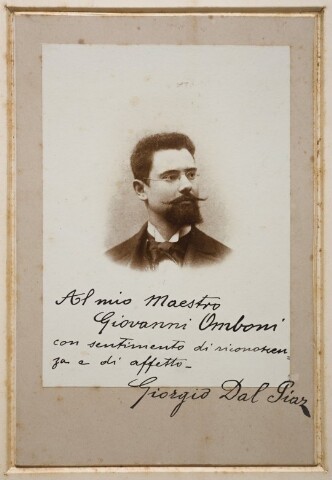 Al mio Maestro
Giovanni Omboni
con sentimento di riconoscen
za e di affetto -
Giorgio Dal Piaz